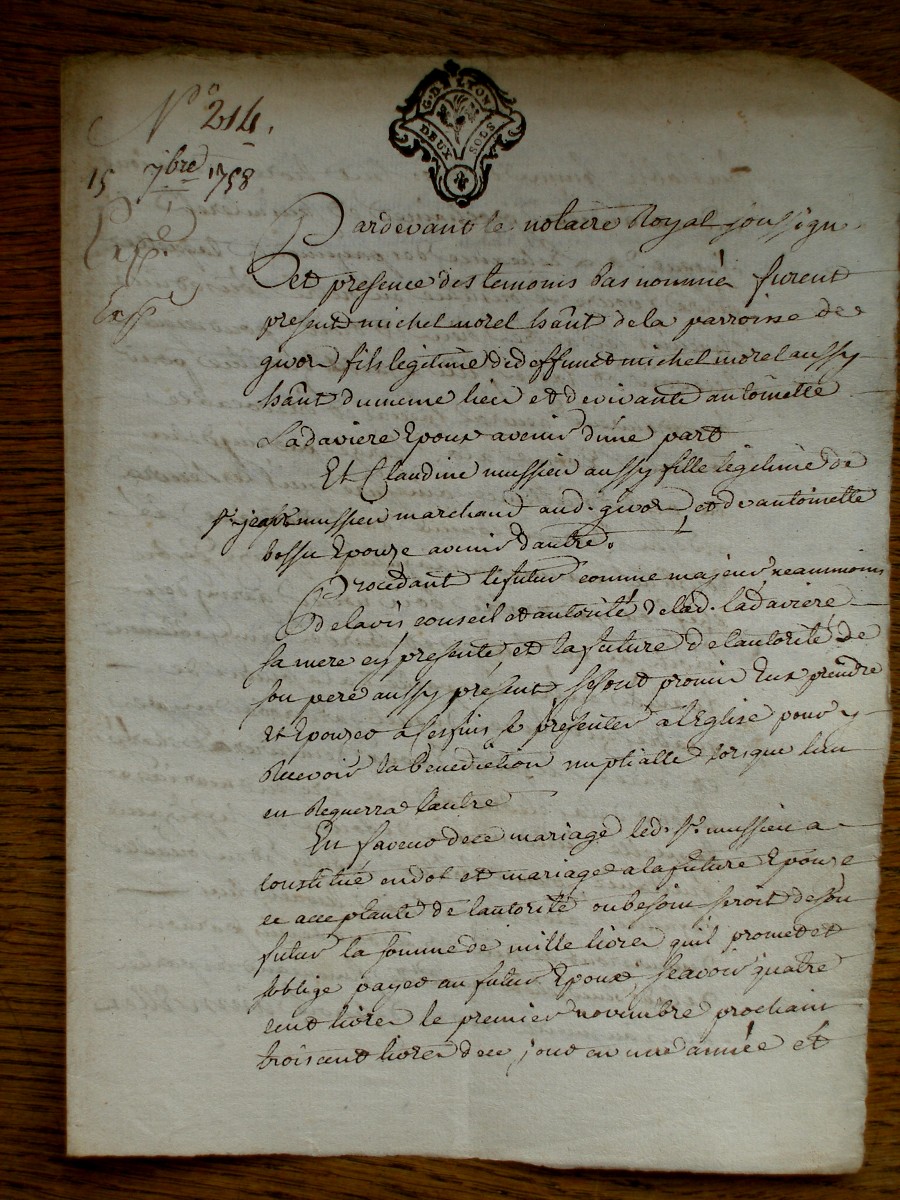 N° 214.
15 7bre 1758
G. DE LYON
DEUX SOLS
Expé
Exp
Pardevant le notaire Royal soussigné
et presence des temoins bas nommés furent
present michel morel habt de la parroisse de
givor fils legitime de deffunct michel morel aussy
habt du meme lieu et de vivante antoinette
Ladaviere Epoux avenir d'une part
Et Claudine mussieu aussy fille legitime de
sr. jean mussieu marchand aud. givor et de antoinette
bossu Epouze avenir d'autre.
Procedant le futur comme majeur neanmoins
de lavis conseil et autorité de lad. Ladaviere
sa mere icy presente, et la future de l'autorité de
son pere aussy present se sont promis Eux prendre
et Epouzer a ces fins se presenter a l'Eglise pour y
Recevoir la benediction nuptialle lorsque l'un
en Requerra l'autre
En faveur de ce mariage led. sr. mussieu a
constitué en dot et mariage a la future Epouze
ce acceptante de l'autorité ou besoin seroit de son
futur la somme de mille livres qu'il promet et
soblige payer au futur Epoux, scavoir quatre
cent livres le premier novembre prochain
trois cent livres de ce jour en une année et